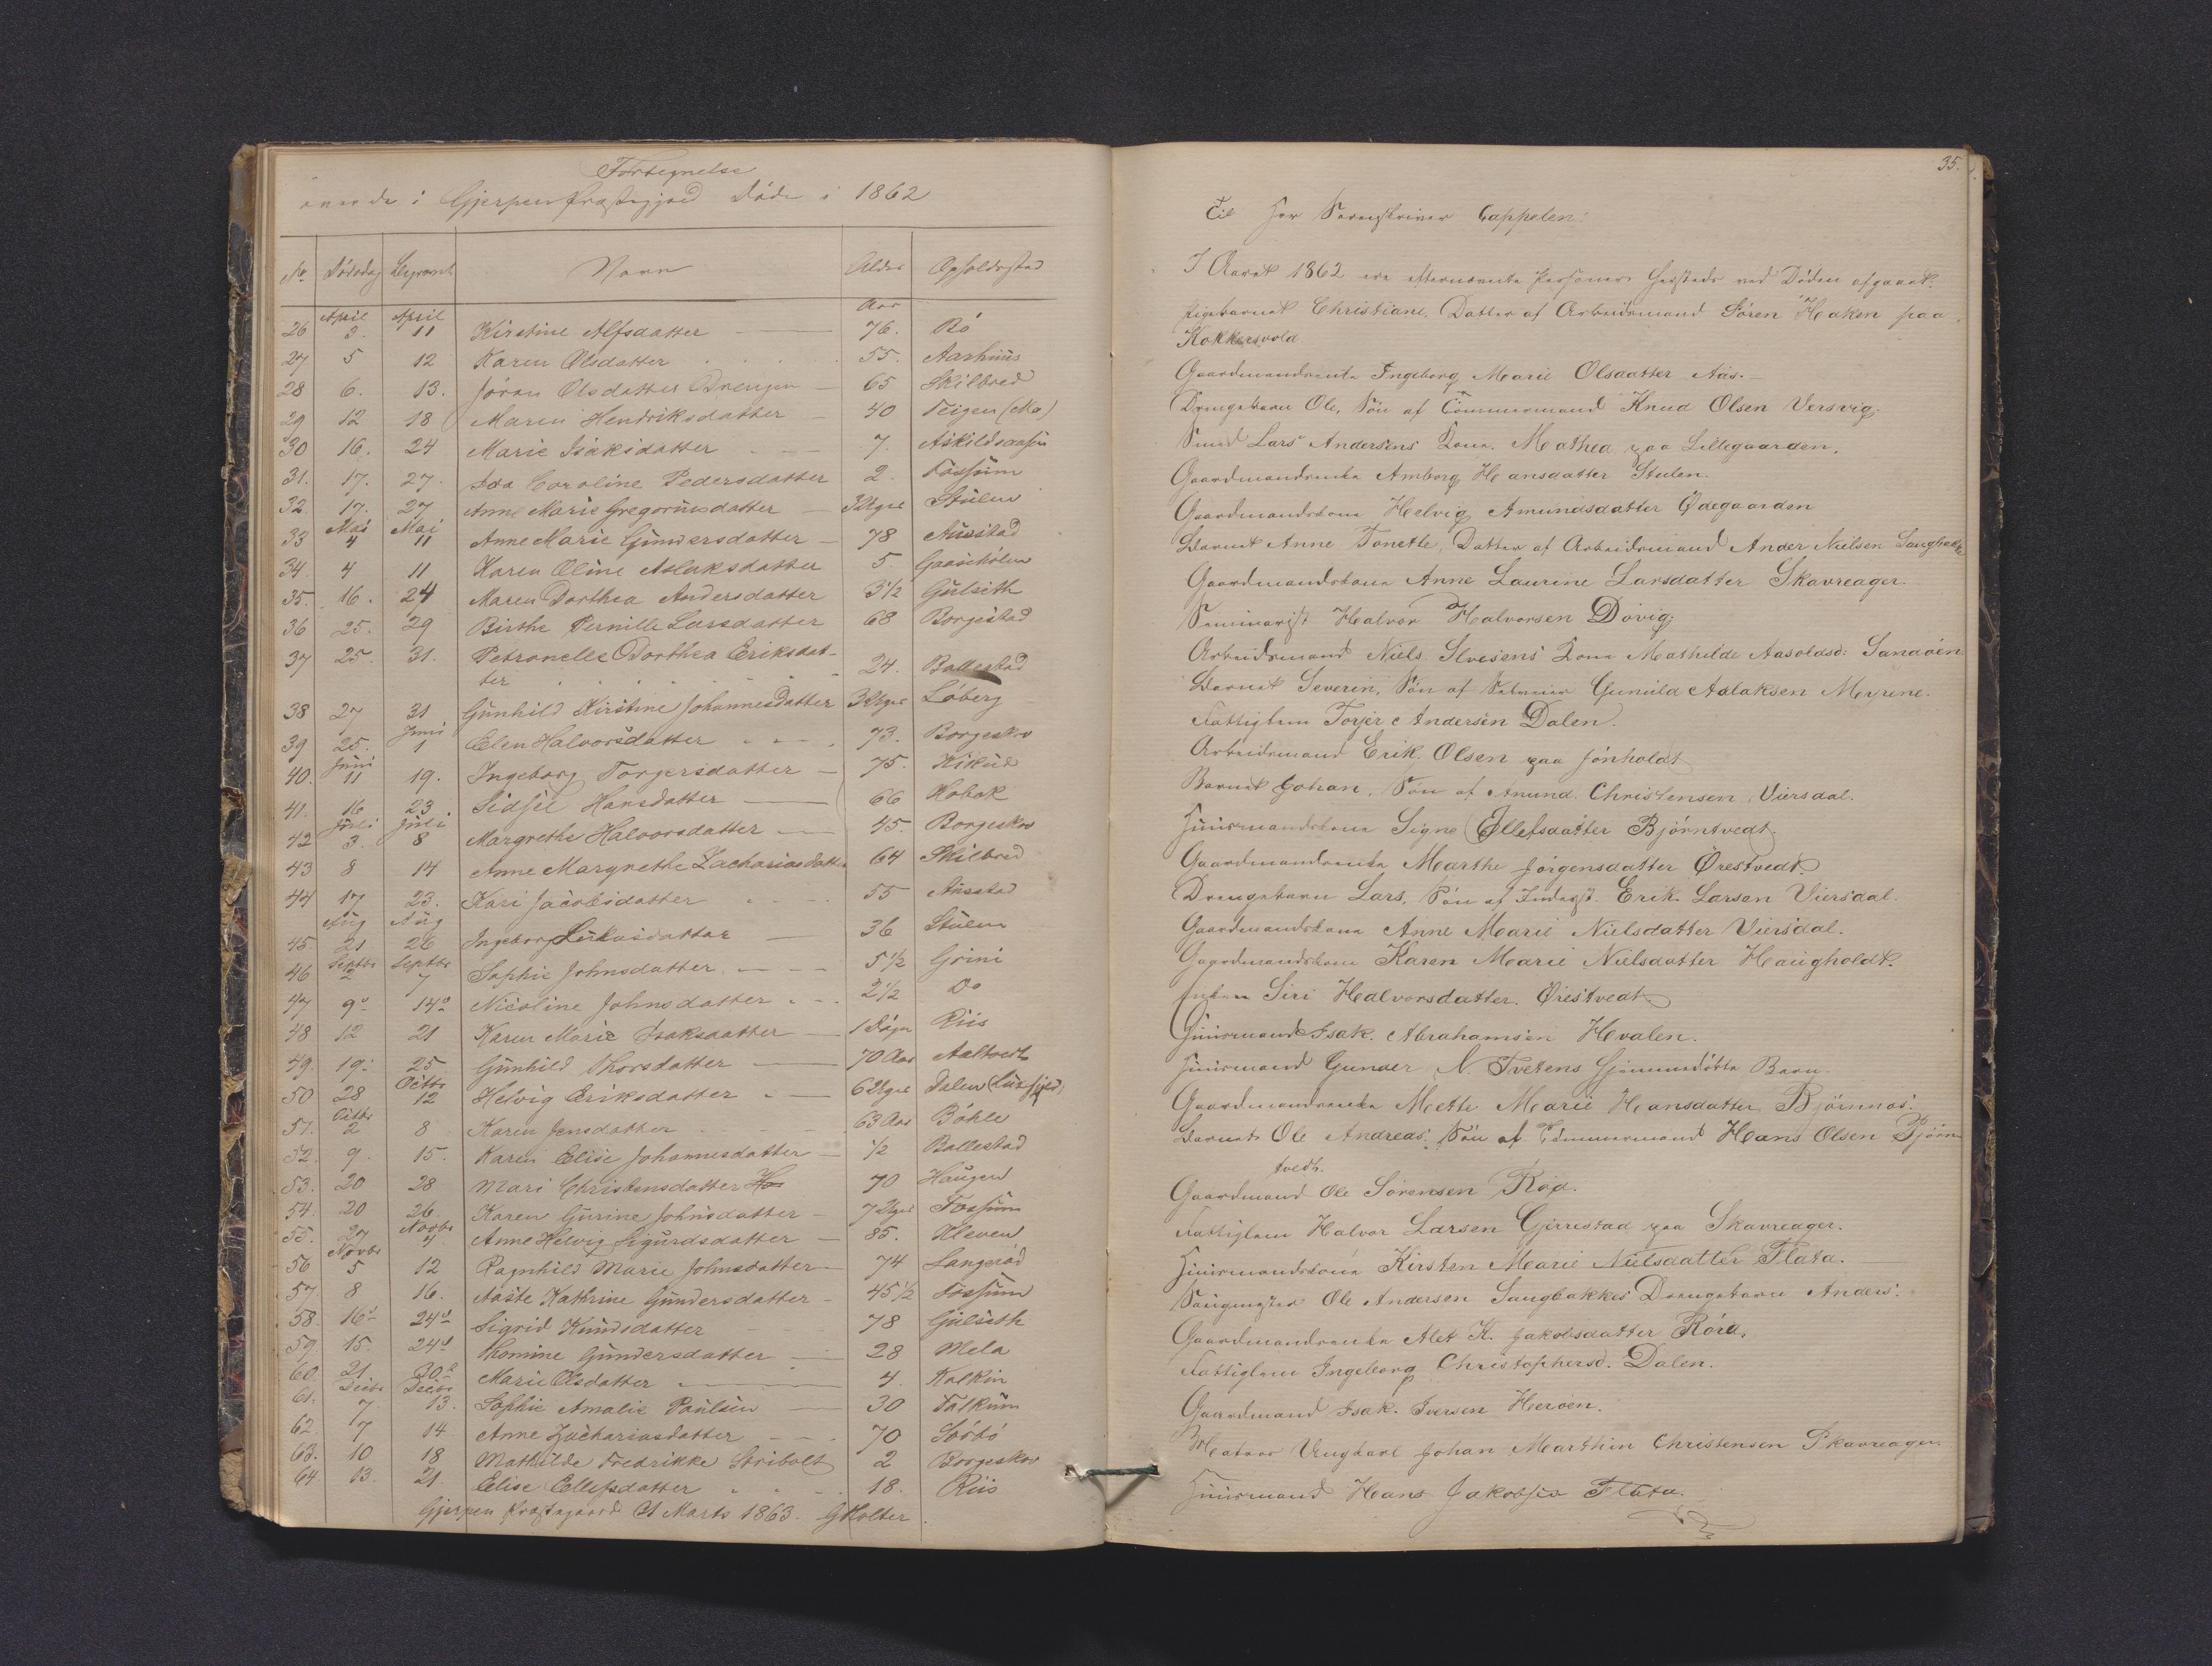 Fortegnelse
over de i Gjerpen Præstegjeld Døde i 1862
No Dødsdag Begravet Navn Alder Opholdssted
April April Aar
26 3. 11 Kirstine Alfsdatter 76. Bö
27 5 12 Karen Olsdatter 55. Aarhuus
28 6. 13. Jöran Olsdatter 65 Skilbred
29 12 18 Maren Hendriksdatter 40 Teigen (Mæ)
30 16. 24 Marie Isaksdatter 7.
31. 17. 27. Ida Caroline Pedersdatter 2. Fossum
32. 17. 27 Anne Marie Gregoriusdatter 3 Uger Stulen
Mai Mai
33 4 11 Anne Marie Gundersdatter 78
34. 4 11 Karen Oline Aslaksdatter 5
35. 16. 24 Maren Dorthea Andersdatter 3 1/2 Gulseth
36 25. 29 Birthe Pernille Larsdatter 68 Borgestad
37 25. 31. Petronelle Dorthea Eriksdat-
ter 24. Ballestad
38 27 31 Gunhild Kirstine Johannesdatter 3 Uger Löberg
Juni
39 25. 1 Elen Halvorsdatter 73. Borgeskov
Juni
40. 11 19. Ingeborg Torgersdatter 75. Kikud
41. 16 23 Sidsel Hansdatter 66 Kobak
Juli Juli
42 3. 8 Margrethe Halvorsdatter 45. Borgeskov
43 8 14 Anne Margrethe Zachariasdatter 64 Skilbred
44 17 23. Kari Jacobsdatter 55
Aug Aug
45 21 26 Ingeborg Lukasdatter 36 Stulen
Septbr Septbr
46 2 7 Sophie Johnsdatter 5 1/2 Grini
47 9d 14d Nicoline Johnsdatter 2 1/2 Do
48 12 21 Karen Marie Isaksdatter 1 Dögn Riis
49. 19. 25 Gunhild Thorsdatter 70 Aar Aaltvedt
Octbr
50 28 12 Helvig Eriksdatter 6 Uger Dalen (Luxefjeld)
Octbr
51. 2 8 Karen Jensdatter 63 Aar Böhle
52. 9. 15. Karen Elise Johannesdatter 1/2 Ballestad
53. 20 28 Mari Christensdatter 70 Haugen
54. 20 26 Karen Gurine Johnsdatter 7 Uger Fossum
Novbr
55. 27 4 Anne Helvig Sigurdsdatter 85. Kleven
Novbr
56 5 12 Ragnhild Marie Johnsdatter 74 Langeröd
57. 8 16. Aaste Kathrine Gundersdatter 45 1/2 Fossum
58. 16d 24d Sigrid Knudsdatter 78 Gulseth
59. 15. 24d Thomine Gundersdatter 28 Mela
60. 21 30d Marie Olsdatter 4. Kalkin
Decbr Decbr
61. 7 13. Sophie Amalie Paulsen 30 Falkum
62. 7 14 Anne Zachariasdatter 70 Sörbö
63. 10 18 Mathilde Fredrikke Stribolt 2 Borgeskov
64. 13. 21. Elise Ellefsdatter 18. Riis
Gjerpen Præstegaard 21 Marts 1863. GHolter.
35.
Til Herr Sorenskriver Cappelen:
I Aaret 1862 ere efternævnte Personer herstede ved Döden afgaaet.
Pigebarnet Christiane, Datter af Arbeidsmand Sören Haaken paa
Kokkersvold
Gaardmandsenke Ingeborg Marie Olsdatter Aas.
Drengebarn Ole, Sön af Tömmermand Knud Olsen Versvig.
Smed Lars Andersens Kone Mathea paa Lillegaarden.
Gaardmandsenke Amborg Hansdatter Stulen.
Gaardmandskone Helvig Amundsdatter Ødegaarden
Barnet Anne Tonette, Datter af Arbeidsmand Ander Nielsen Saugbakke
Gaardmandskone Anne Laurine Larsdatter Skavreager.
Seminarist Halvor Halvorsen Dövig.
Arbeidsmand Niels Ilvesens Kone Mathilde Aasoldsd: Sandöen
Barnet Severin, Sön af Selveier Gunuld Aslaksen Meyrene.
Fattiglem Torjer Andersen Dalen.
Arbeidsmand Erik Olsen paa Jönholdt
Barnet Johan, Sön af Anund Christensen Viersdal.
Huusmandskone Signe Ellefsdatter Björntvedt.
Gaardmandsenke Marthe Jörgensdatter Örestvedt.
Drengebarn Lars, Sön af Inderst Erik Larsen Viersdal.
Gaardmandskone Anne Marie Nielsdatter Viersdal.
Gaardmandskone Karen Marie Nielsdatter Haugholdt.
Enken Siri Halvorsdatter Örestvedt.
Huusmand Isak Abrahamsen Hvalen.
Huusmand Gunder N. Tvetens hjemmedöbte Barn.
Gaardmandsenke Mette Marie Hansdatter Björnnæs.
Barnet Ole Andreas, Sön af Tömmermand Hans Olsen Björn-
tvedt.
Gaardmand Ole Sörensen Röd.
Fattiglem Halvor Larsen Gjerrestad paa Skavreager.
Huusmandskone Kirsten Marie Nielsdatter Flata.
Saugmester Ole Andersen Saugbakkes Drengebarn Anders.
Gaardmandsenke Alet K. Jakobsdatter Röra.
Fattiglem Ingeborg Christophersd. Dalen.
Gaardmand Isak Iversen Heröen.
Matros Ungkarl Johan Marthin Christensen Skavreager.
Huusmand Hans Jakobsen Flata.